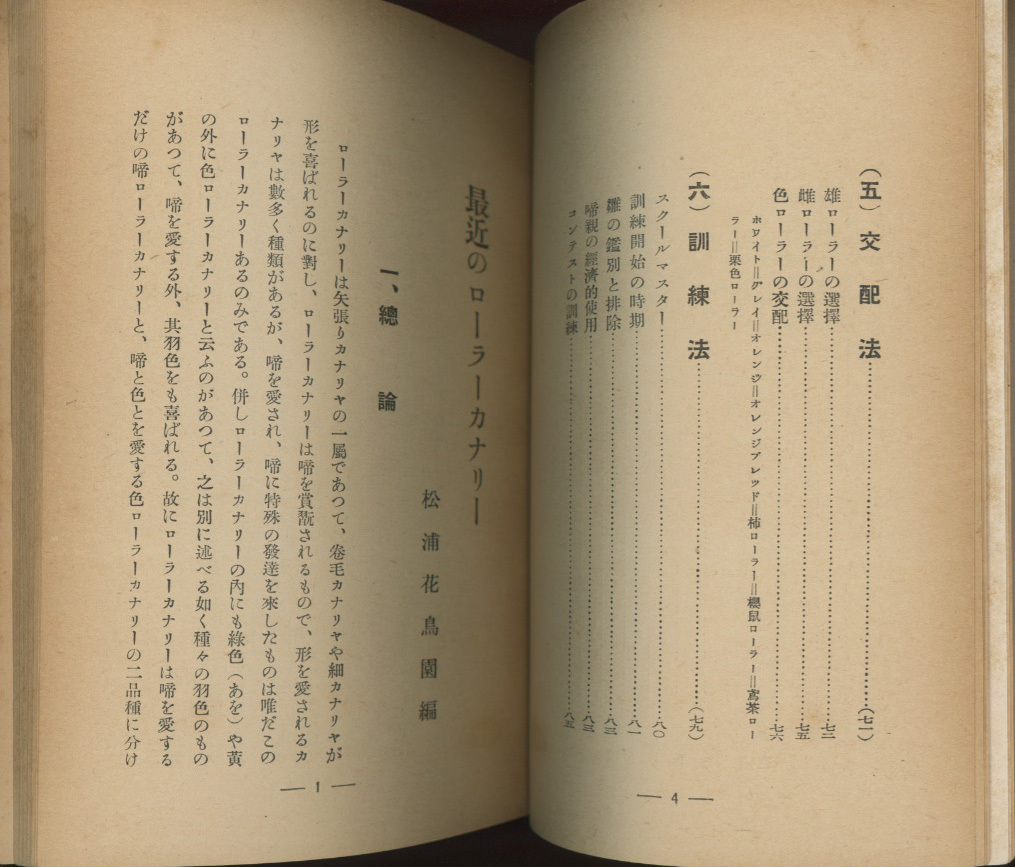 (五)交配法……(七一)
雄ローラーの選擇……七三
雌ローラーの選擇……七五
色ローラーの交配……七六
ホワイト‖グレイ‖オレンヂ‖オレンジブレッド‖柿ローラー‖櫻鼠ローラー‖鳶茶ロー
ラー‖栗色ローラー
(六)訓練法……(七九)
スクールマスター……八〇
訓練開始の時期……八一
雛の鑑別と排除……八三
啼親の經濟的使用……八三
コンテストの訓練……八五
— 4 —
最近のローラーカナリー
松浦花鳥園編
一、總論
ローラーカナリーは矢張りカナリヤの一屬であつて、卷毛カナリヤや細カナリヤが
形を喜ばれるのに對し、ローラーカナリーは啼を賞翫されるもので、形を愛されるカ
ナリヤは數多く種類があるが、啼を愛され、啼に特殊の發達を來したものは唯だこの
ローラーカナリーあるのみである。併しローラーカナリーの內にも綠色(あを)や黃
の外に色ローラーカナリーと云ふのがあつて、之は別に述べる如く種々の羽色のもの
があつて、啼を愛する外、其羽色をも喜ばれる。故にローラーカナリーは啼を愛する
だけの啼ローラーカナリーと、啼と色とを愛する色ローラーカナリーの二品種に分け
— 1 —